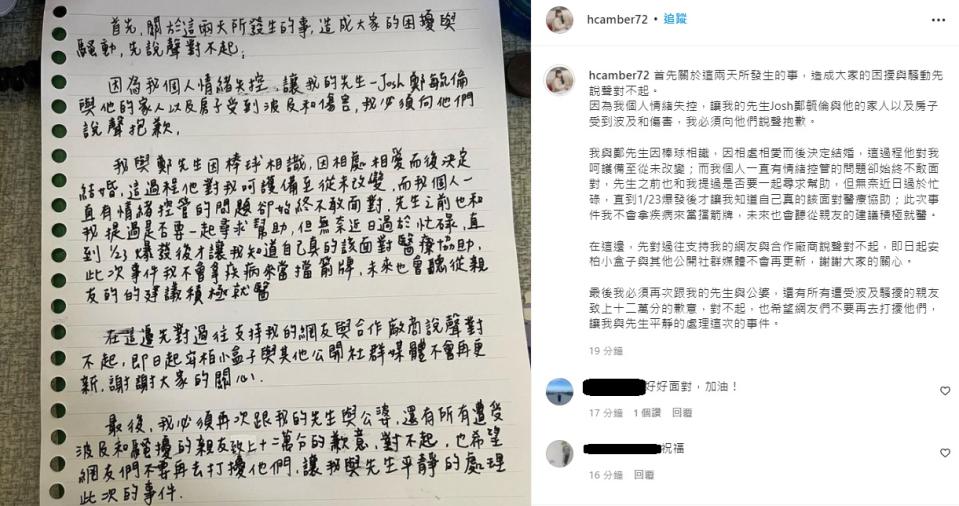 首先，關於這兩天所發生的事，造成大家的困擾與
騷動，先說聲對不起。
因為我個人情緒失控，讓我的先生-Josh鄭毓倫
與他的家人以及房子受到波及和傷害，我必須向他們
說聲抱歉。
我與鄭先生因棒球相識，因相處相愛而後決定
結婚，這過程他對我呵護備至從未改變，而我個人一
直有情緒控管的問題卻始終不敢面對，先生之前也和
我提過是否要一起尋求幫助，但無奈近日過於忙碌，直
到1/23爆發後才讓我知道自己真的該面對醫療協助，
此次事件我不會拿疾病來當擋箭牌，未來也會聽從親
友的的建議積極就醫
在這邊先對過往支持我的網友與合作廠商說聲對
不起，即日起安柏小盒子與其他公開社群媒體不會再更
新，謝謝大家的關心.
最後，我必須再次跟我的先生與公婆，還有所有遭受
波及和騷擾的親友致上十二萬分的歉意，對不起，也希望
網友們不要再去打擾他們，讓我與先生平靜的處理
此次的事件.
hcamber72 • 追蹤
hcamber72 首先關於這兩天所發生的事，造成大家的困擾與騷動先
說聲對不起。
因為我個人情緒失控，讓我的先生Josh鄭毓倫與他的家人以及房子
受到波及和傷害，我必須向他們說聲抱歉。
我與鄭先生因棒球相識，因相處相愛而後決定結婚，這過程他對我
呵護備至從未改變；而我個人一直有情緒控管的問題卻始終不敢面
對，先生之前也和我提過是否要一起尋求幫助，但無奈近日過於忙
碌，直到1/23爆發後才讓我知道自己真的該面對醫療協助；此次事
件我不會拿疾病來當擋箭牌，未來也會聽從親友的建議積極就醫。
在這邊，先對過往支持我的網友與合作廠商說聲對不起，即日起安
柏小盒子與其他公開社群媒體不會再更新，謝謝大家的關心。
最後我必須再次跟我的先生與公婆，還有所有遭受波及騷擾的親友
致上十二萬分的歉意，對不起，也希望網友們不要再去打擾他們，
讓我與先生平靜的處理這次的事件。
19 分鐘
好好面對，加油！
17 分鐘 1 個讚 回覆
祝福
16 分鐘 回覆